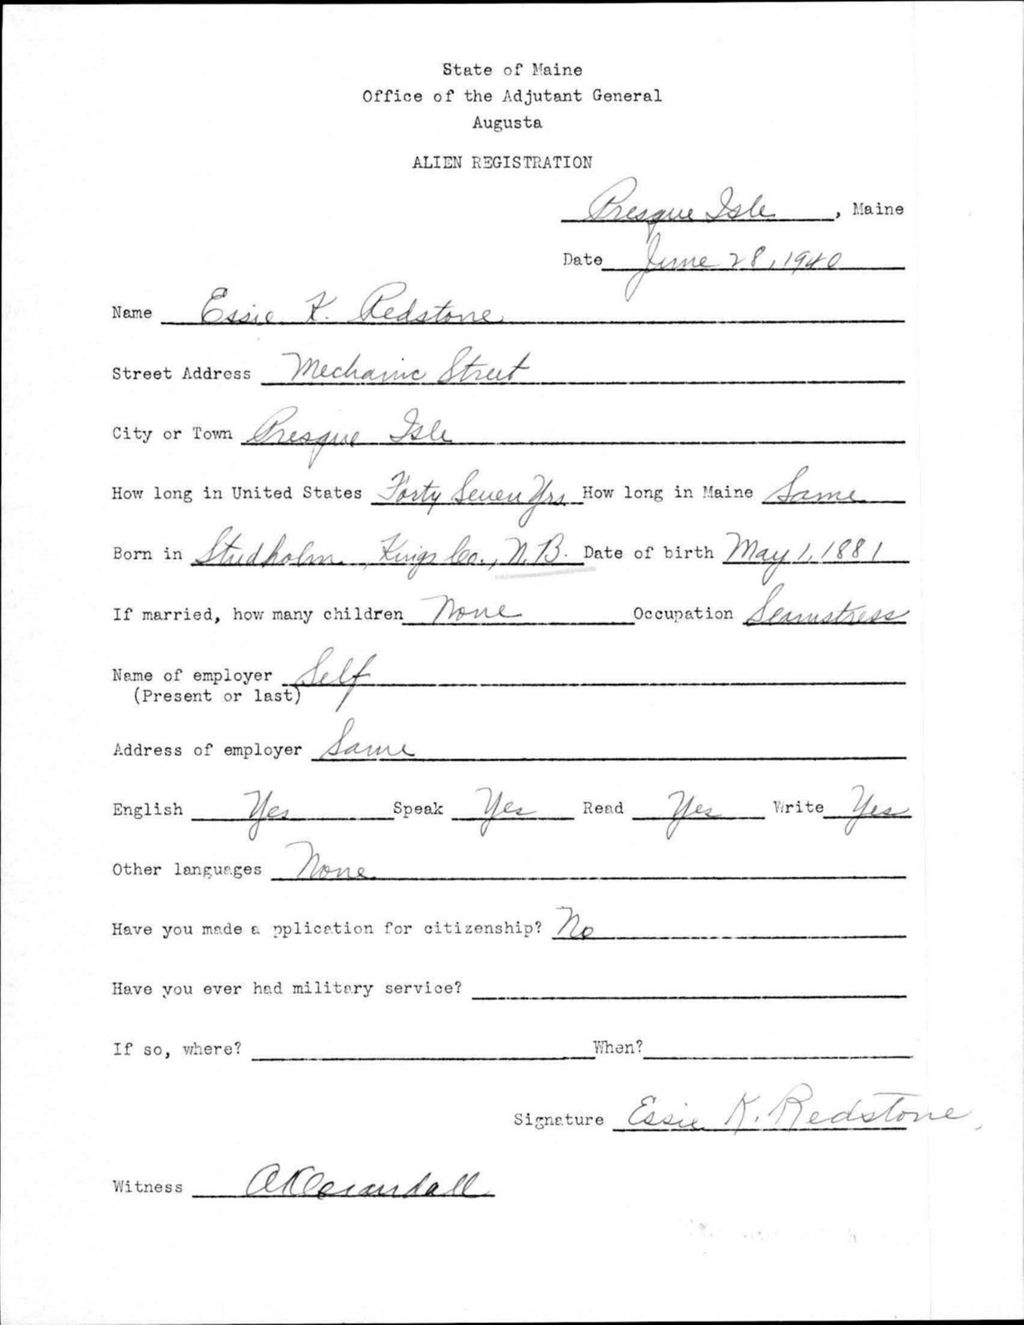 State of Maine
Office of the Adjutant General
Augusta
ALIEN REGISTRATION
Presque Isle, Maine
Date June 28, 1940
Name Essie K. Redstone
Street Address Mechanic Street
City or Town Presque Isle
How long in United States Forty Seven Yrs How long in Maine Same
Born in Studholm, Kings Co., N.B. Date of birth May 1, 1881
If married, how many children None Occupation Seamstress
Name of employer Self
(Present or last)
Address of employer Same
English Yes Speak Yes Read Yes Write Yes
Other languages None
Have you made a pplication for citizenship? No
Have you ever had military service?
If so, where? When?
Signature Essie K. Redstone
Witness